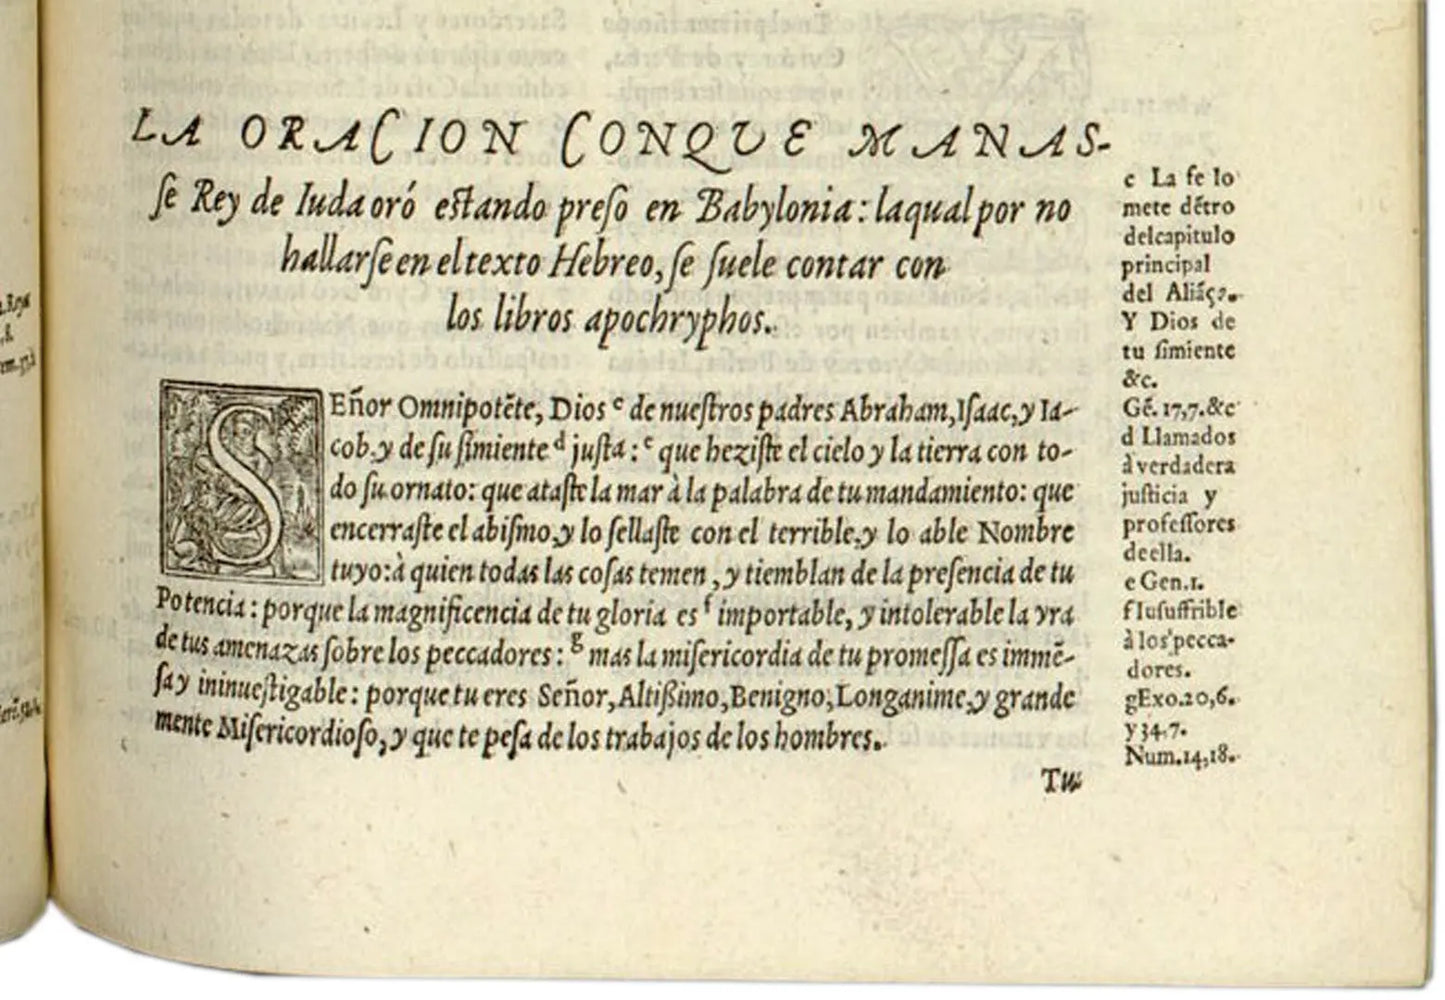 LA ORACION CONQUE MANAS-
ſe Rey de Iuda oró eſtando preſo en Babylonia: laqual por no
hallarſe en el texto Hebreo, ſe ſuele contar con
los libros apochryphos.
SEñor Omnipotẽte, Dios ᶜ de nueſtros padres Abraham, Iſaac, y Ia-
cob, y de ſu ſimiente ᵈ juſta: ᵉ que heziſte el cielo y la tierra con to-
do ſu ornato: que ataſte la mar à la palabra de tu mandamiento: que
encerraſte el abiſmo, y lo ſellaſte con el terrible, y lo able Nombre
tuyo: à quien todas las coſas temen, y tiemblan de la preſencia de tu
Potencia: porque la magnificencia de tu gloria es ᶠ importable, y intolerable la yra
de tus amenazas ſobre los peccadores: ᵍ mas la miſericordia de tu promeſſa es immẽ-
ſa y ininueſtigable: porque tu eres Señor, Altißimo, Benigno, Longanime, y grande
mente Miſericordioſo, y que te peſa de los trabajos de los hombres.
Tu
c La fe lo
mete dẽtro
del capitulo
principal
del Aliáç?.
Y Dios de
tu ſimiente
&c.
Gẽ. 17,7. &c
d Llamados
à verdadera
juſticia y
profeſſores
deella.
e Gen. 1.
f Iuſuffrible
à los pecca-
dores.
g Exo. 20,6.
y 34,7.
Num. 14,18.